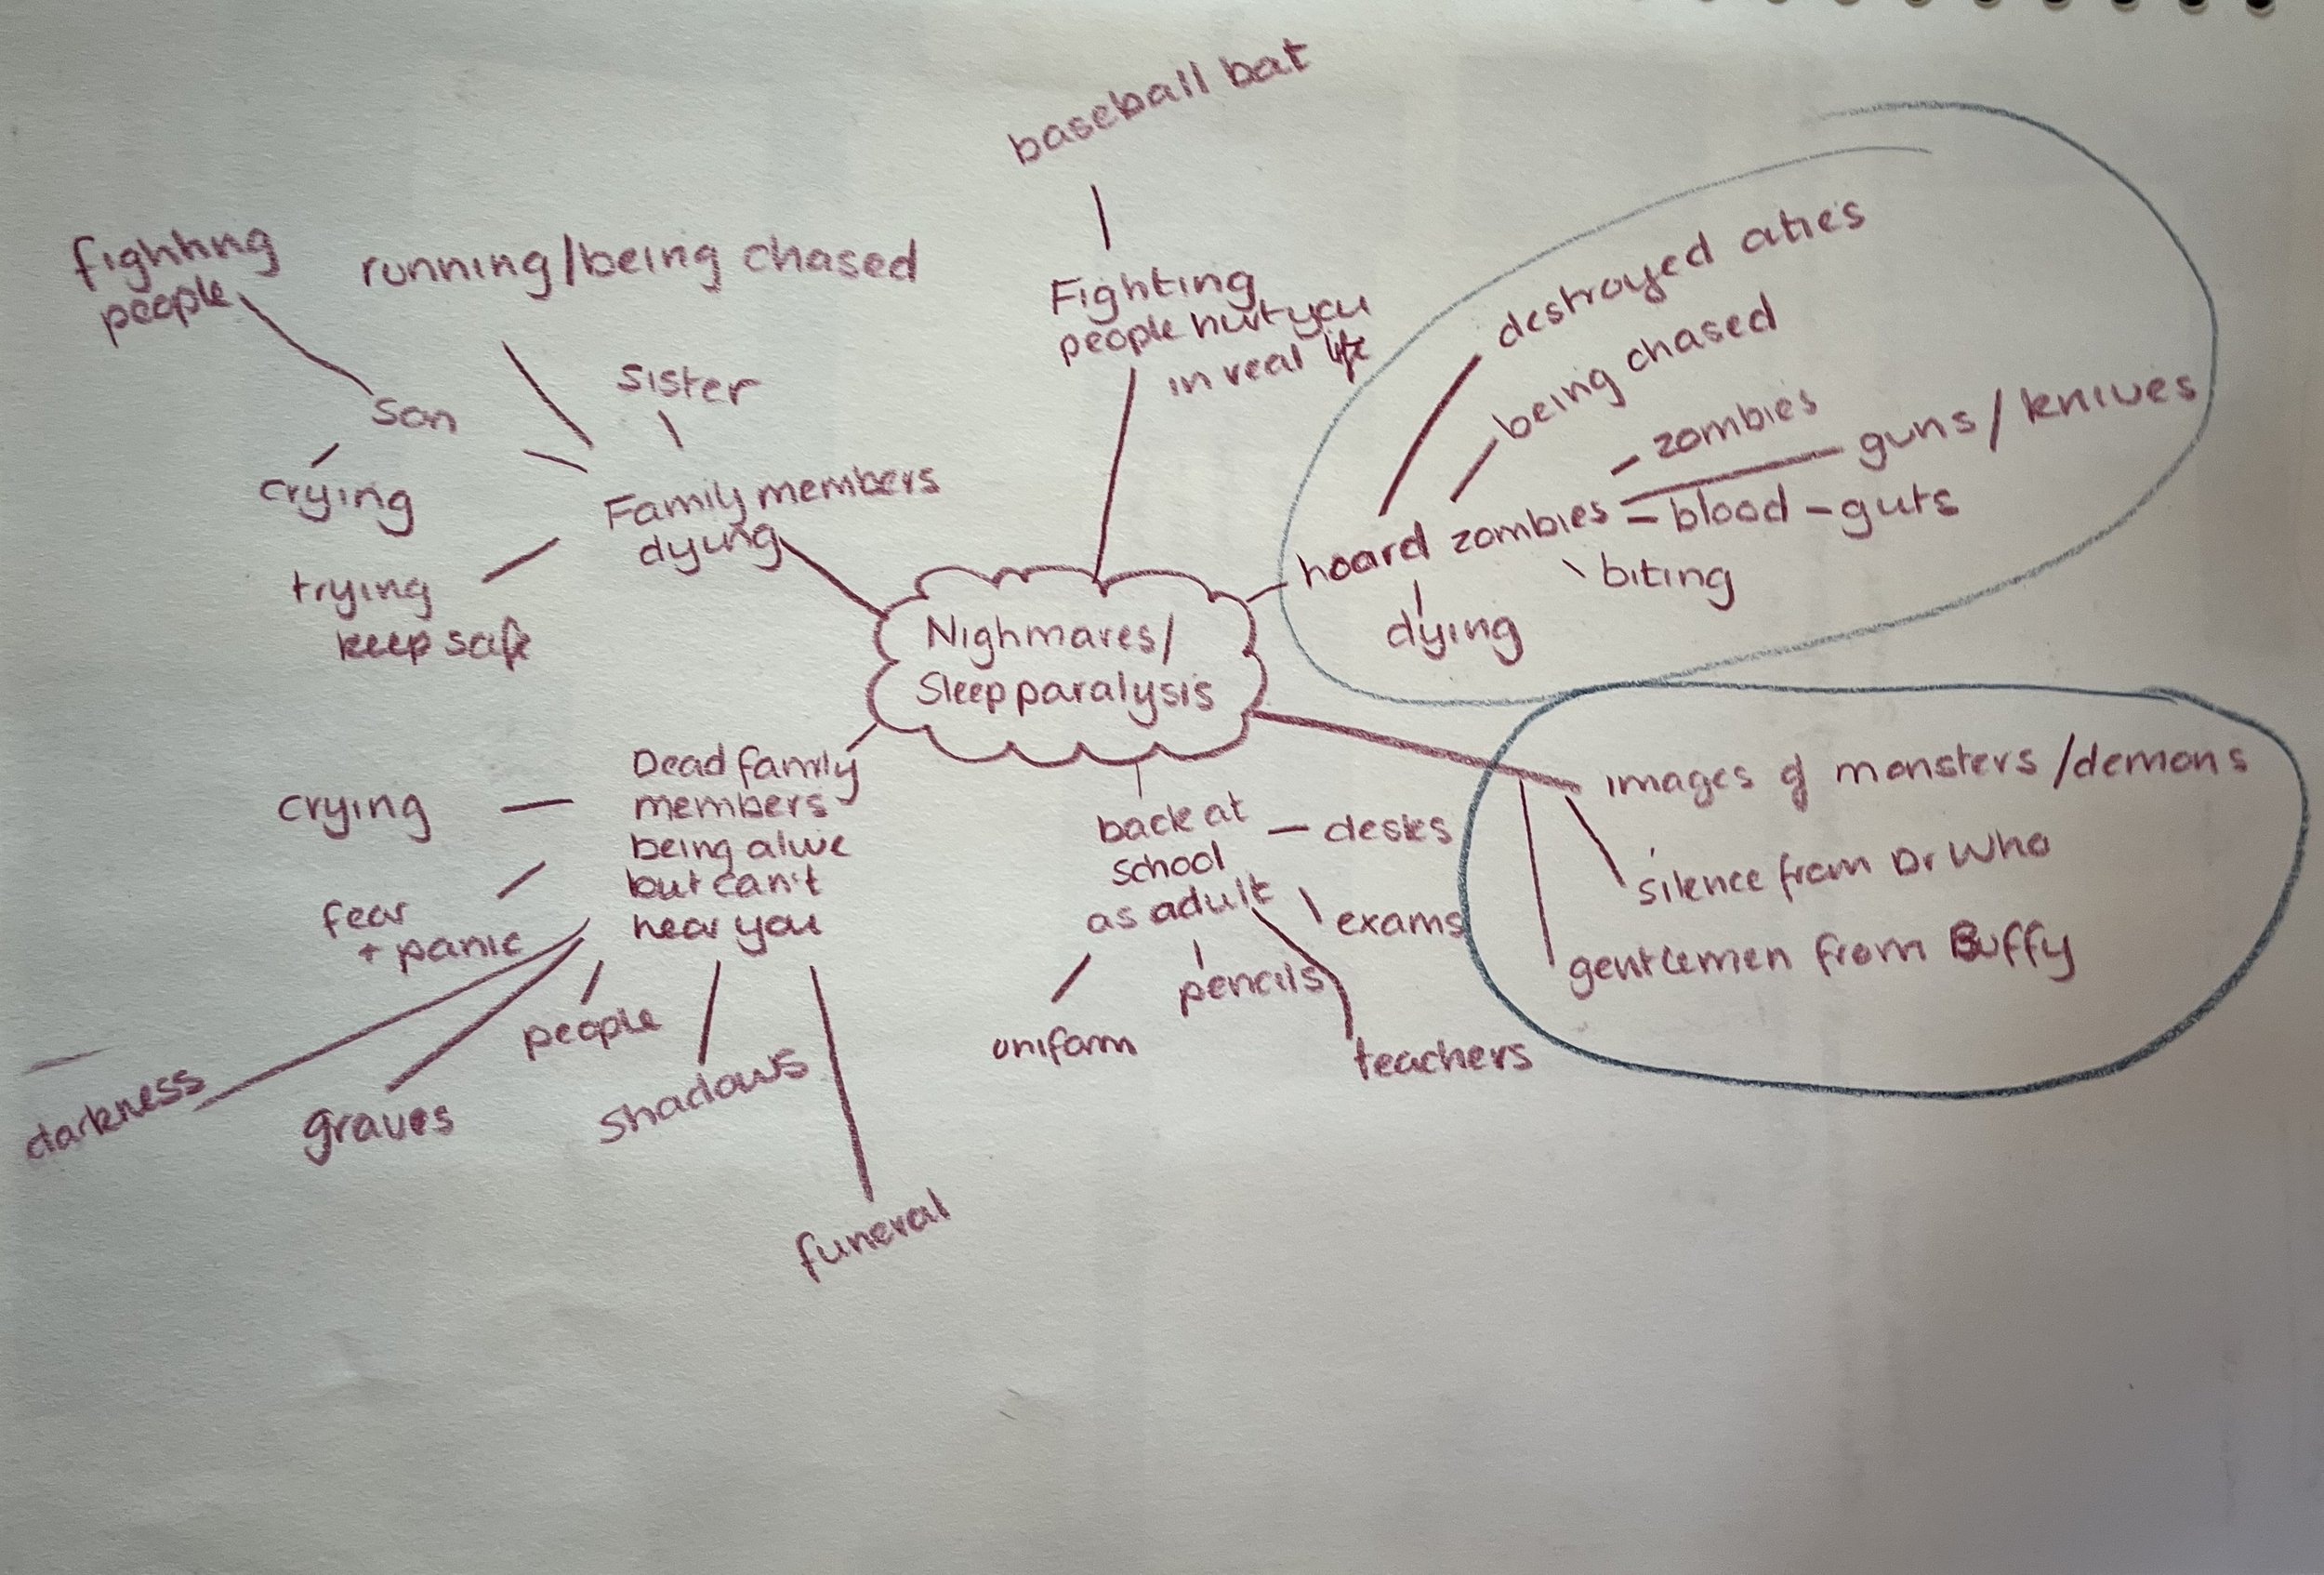 baseball bat
fighting
people
running/being chased
Fighting
people hurt you
in real life
destroyed cities
being chased
zombies
guns / knives
hoard zombies
blood - guts
biting
dying
sister
son
crying
Family members
dying
trying
keep safe
Nighmares/
Sleep paralysis
Dead family
members
being alive
but can't
hear you
crying
fear
+ panic
people
darkness
graves
shadows
funeral
back at
school
as adult
desks
exams
pencils
uniform
teachers
images of monsters /demons
silence from Dr Who
gentlemen from Buffy